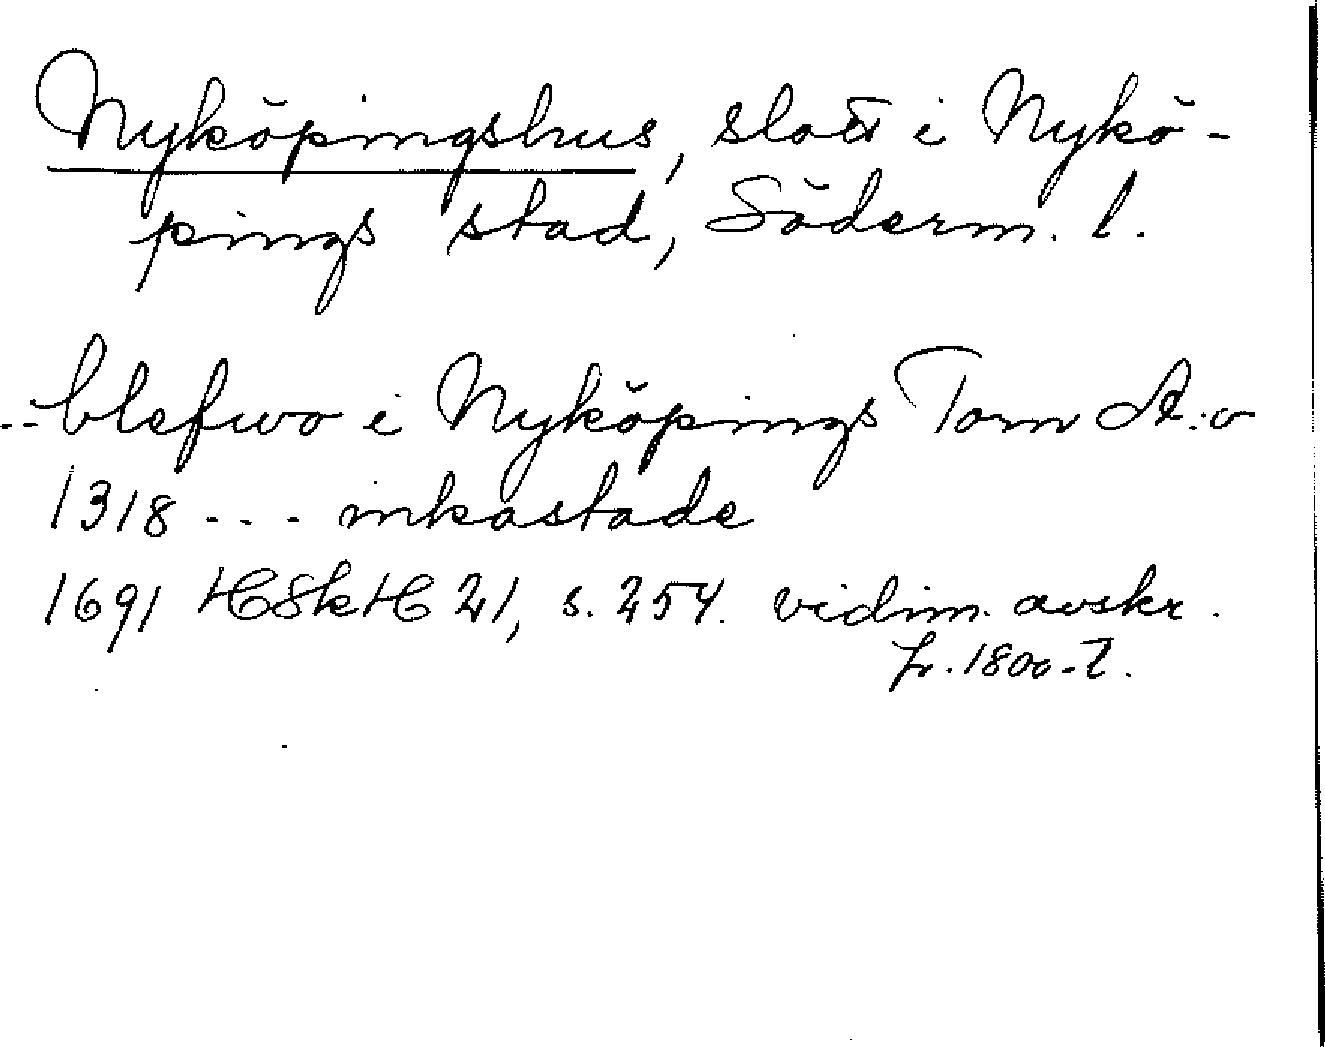 Nyköpingshus, slott i Nykö-
pings stad, Söderm. l.
.. blefwo i Nyköpings Torn A:o
1318 ... inkastade
1691 HSkH 21, s. 254. vidim. avskr.
fr. 1800-t.